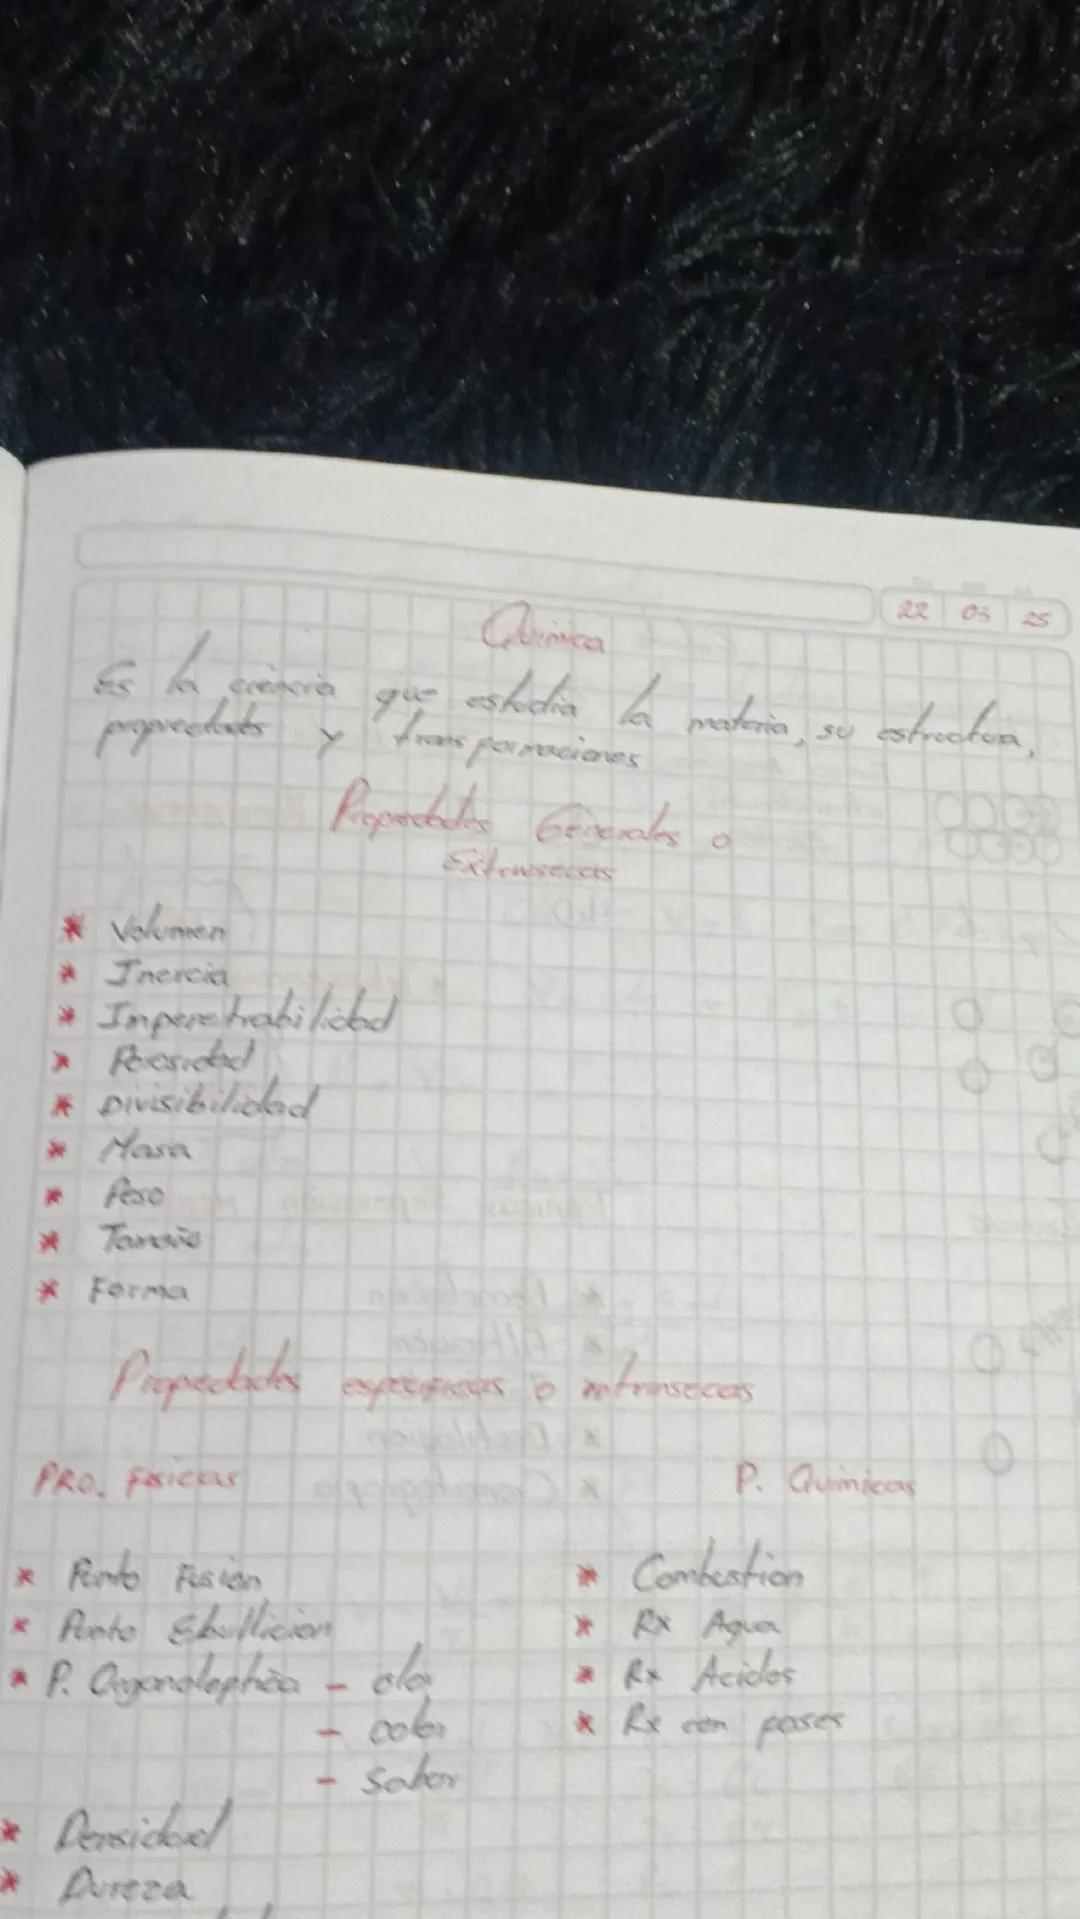 22 05 25
Química
Es la ciencia que estudia la materia, su estructura,
propiedades y transformaciones
Propiedades Generales o
Extrinsecas
* Volumen
* Inercia
* Impenetrabilidad
* Porosidad
* Divisibilidad
* Masa
* Peso
* Tamaño
* Forma
Propiedades especificas o intrinsecas
PRO. Fisicas
P. Quimicas
* Punto Fusión
* Punto Ebullicion
* P. Organoleptica - olor
- color
- Sabor
* Densidad
* Dureza
* Combustion
* Rx Agua
* Rx Acidos
* Rx con